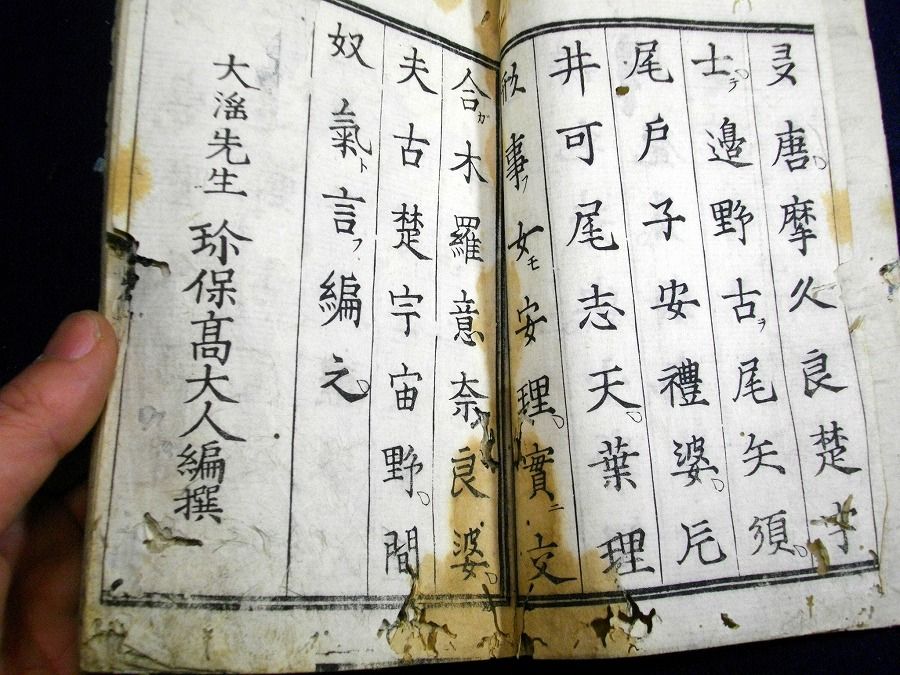 唐摩久良楚
士テ邊野古ヲ尾矢須
尾戸子安禮婆
井可尾志天葉理
事フ女モ安理實ニ交
合ガ木羅意奈良婆
夫古楚宇宙野間
奴氣ト言フ編之
大滛先生 珎保髙大人編撰